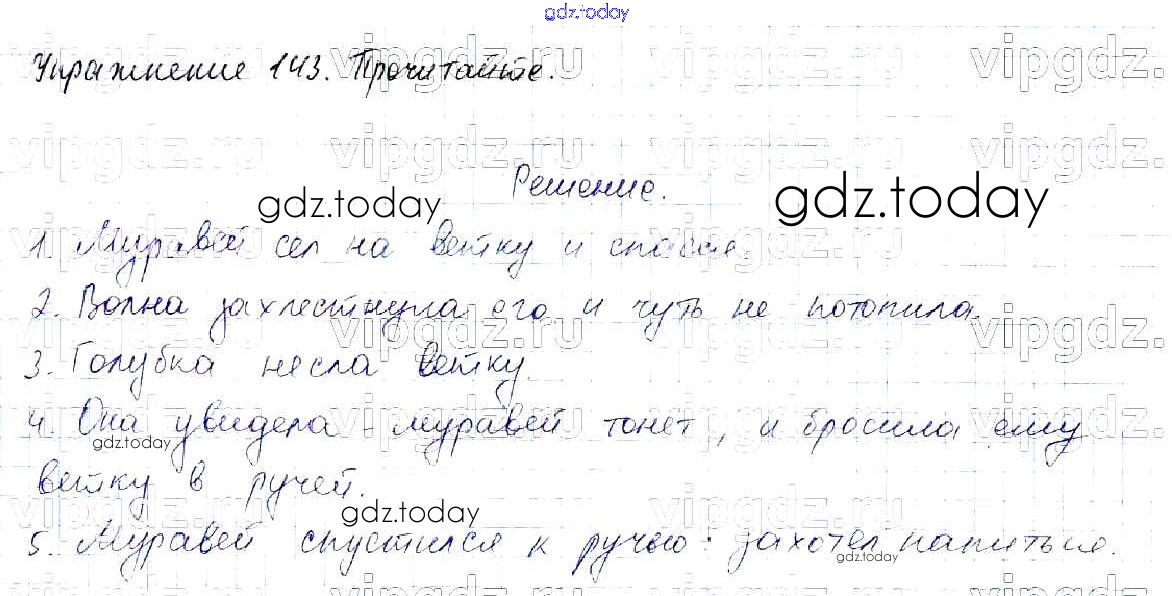 gdz.today
Упражнение 143. Прочитайте.
vipgdz.ru vipgdz.ru vipgdz.ru
vipgdz.ru vipgdz.ru vipgdz.ru
Решение.
gdz.today gdz.today
1. Муравей сел на ветку и спасся.
2. Волна захлестнула его и чуть не потопила.
3. Голубка несла ветку.
4. Она увидела - муравей тонет, и бросила ему
gdz.today
ветку в ручей.
gdz.today
5. Муравей спустился к ручью: захотел напиться.
gdz.today